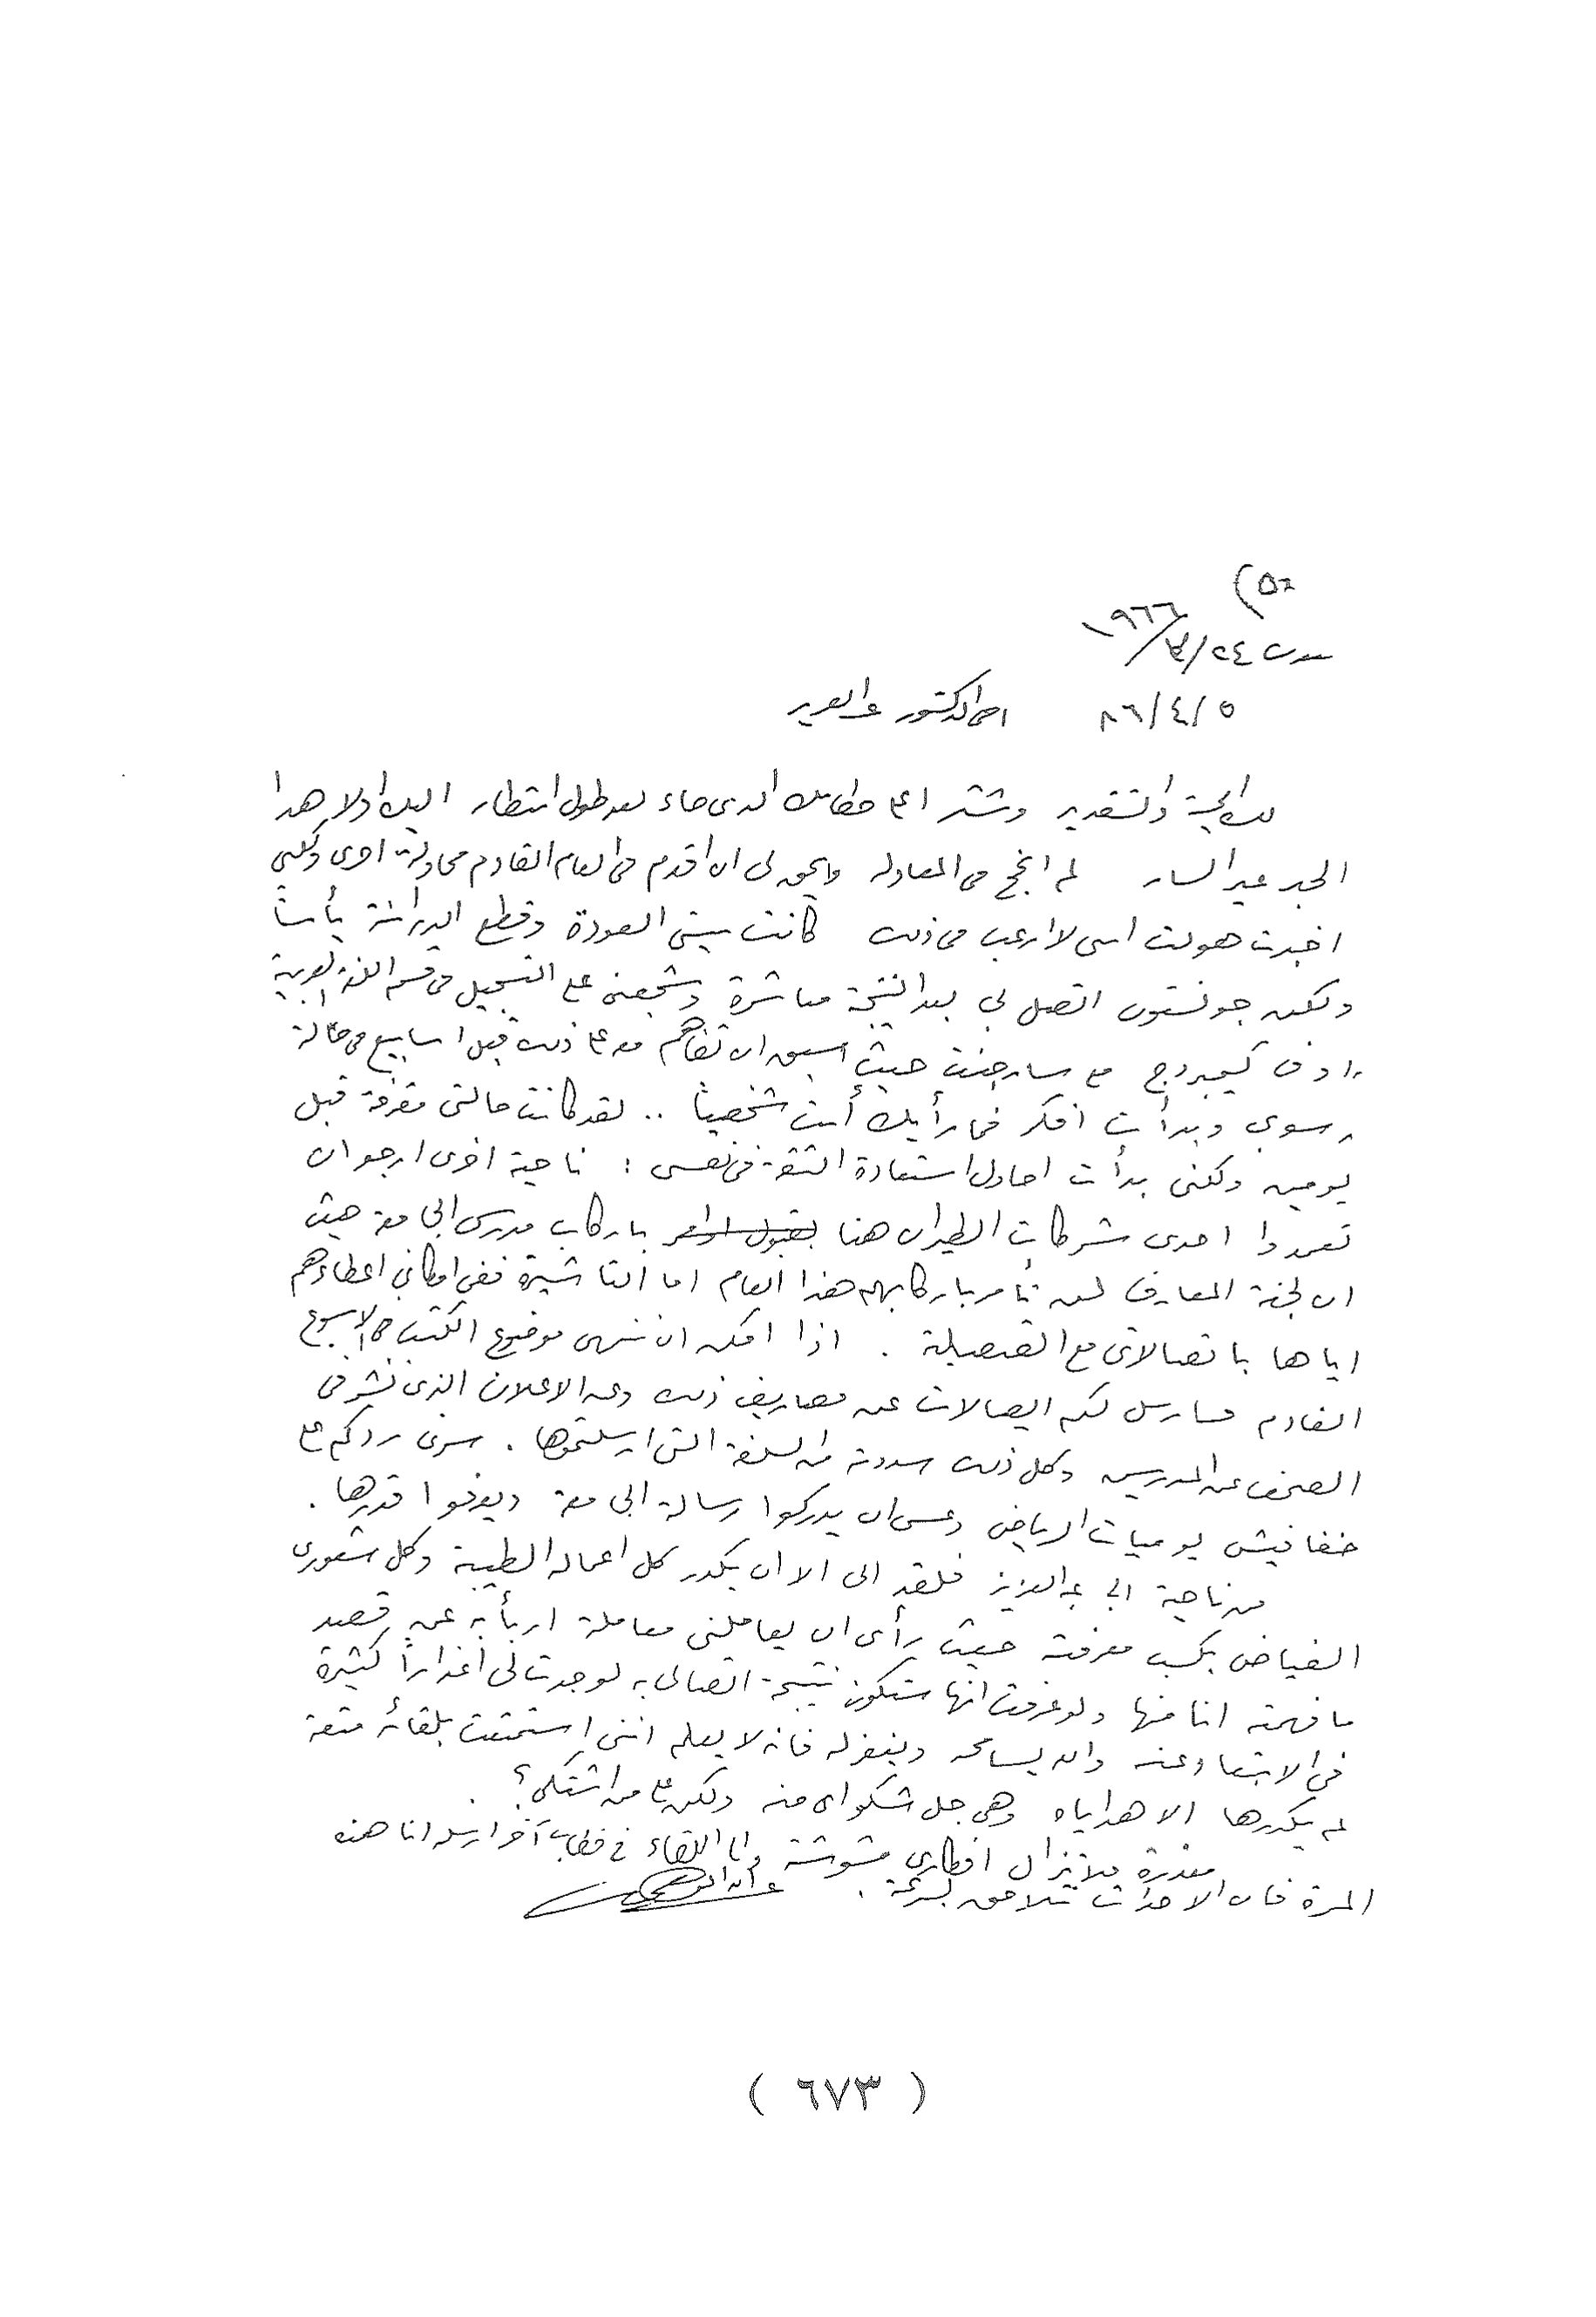 (٥٢
سرت ٢٤/٣/١٩٦٦
٨٦/٤/٥ اخي الدكتور عبدالعزيز
لك المحبة والتقدير وشكرا على خطابك الذي جاء بعد طول انتظار اليك اولا هذا
الخبر غير السار لم انجح في المعادلة ويحق لي ان اقدم في العام القادم محاولة اخرى ولكني
اخبرت هولت انني لا ارغب في ذلك كانت نيتي العودة وقطع الدراسة يأساً
ولكن جونستون اتصل بي بعد النتيجة مباشرة وشجعني على التسجيل في قسم اللغة العربية
او في كيمبردج مع سارجنت حيث سبق ان تفاهم معه على ذلك قبل اسابيع في حالة
رسوبي وبدأت افكر فما رأيك أنت شخصياً .. لقد كانت حالتي مقرفة قبل
يومين ولكني بدأت احاول استعادة الثقة في نفسي : ناحية اخرى ارجو ان
تعمدوا احدى شركات الطيران هنا بقبول اوامر باركاب مدرسي الجامعة حيث
ان لجنة المعارف لن تأمر باركابهم هذا العام اما التأشيرة ففي امكاني اعطاءهم
اياها باتصالاتي مع القنصيلة . اذا امكن ان ننهي موضوع الكتب في الاسبوع
القادم فسارسل لكم ايصالات عن مصاريف ذلك وعن الاعلان الذي نشر في
الصحف عن المدرسين وكل ذلك سددته من السلفة التي ارسلتموها . سرني ردكم على
خفافيش يوميات الرياض وعسى ان يدركوا رسالة الجامعة ويعرفوا قدرها .
من ناحية ابي عبدالعزيز فلقد ابى الا ان يكدر كل اعماله الطيبة وكل شعوري
الفياض بكسب معرفته حيث رأى ان يعاملني معاملة اربأ به عن قصد
ما فهمته انا منها ولو عرفت انها ستكون نتيجة اتصالي به لوجدت لي أعذاراً كثيرة
في الابتعاد عنه والله يسامحه ويغفر له فانه لا يعلم انني استمتعت بلقائه متعة
لم يكدرها الا هداياه وهي جل شكواي منه ولكن على من اشتكي؟
معذرة فلاتزال افكاري مشوشة والى اللقاء في خطاب آخر ارسله انا هذه
المرة فان الاحداث تتلاحق بسرعة .
( ٦٧٣ )